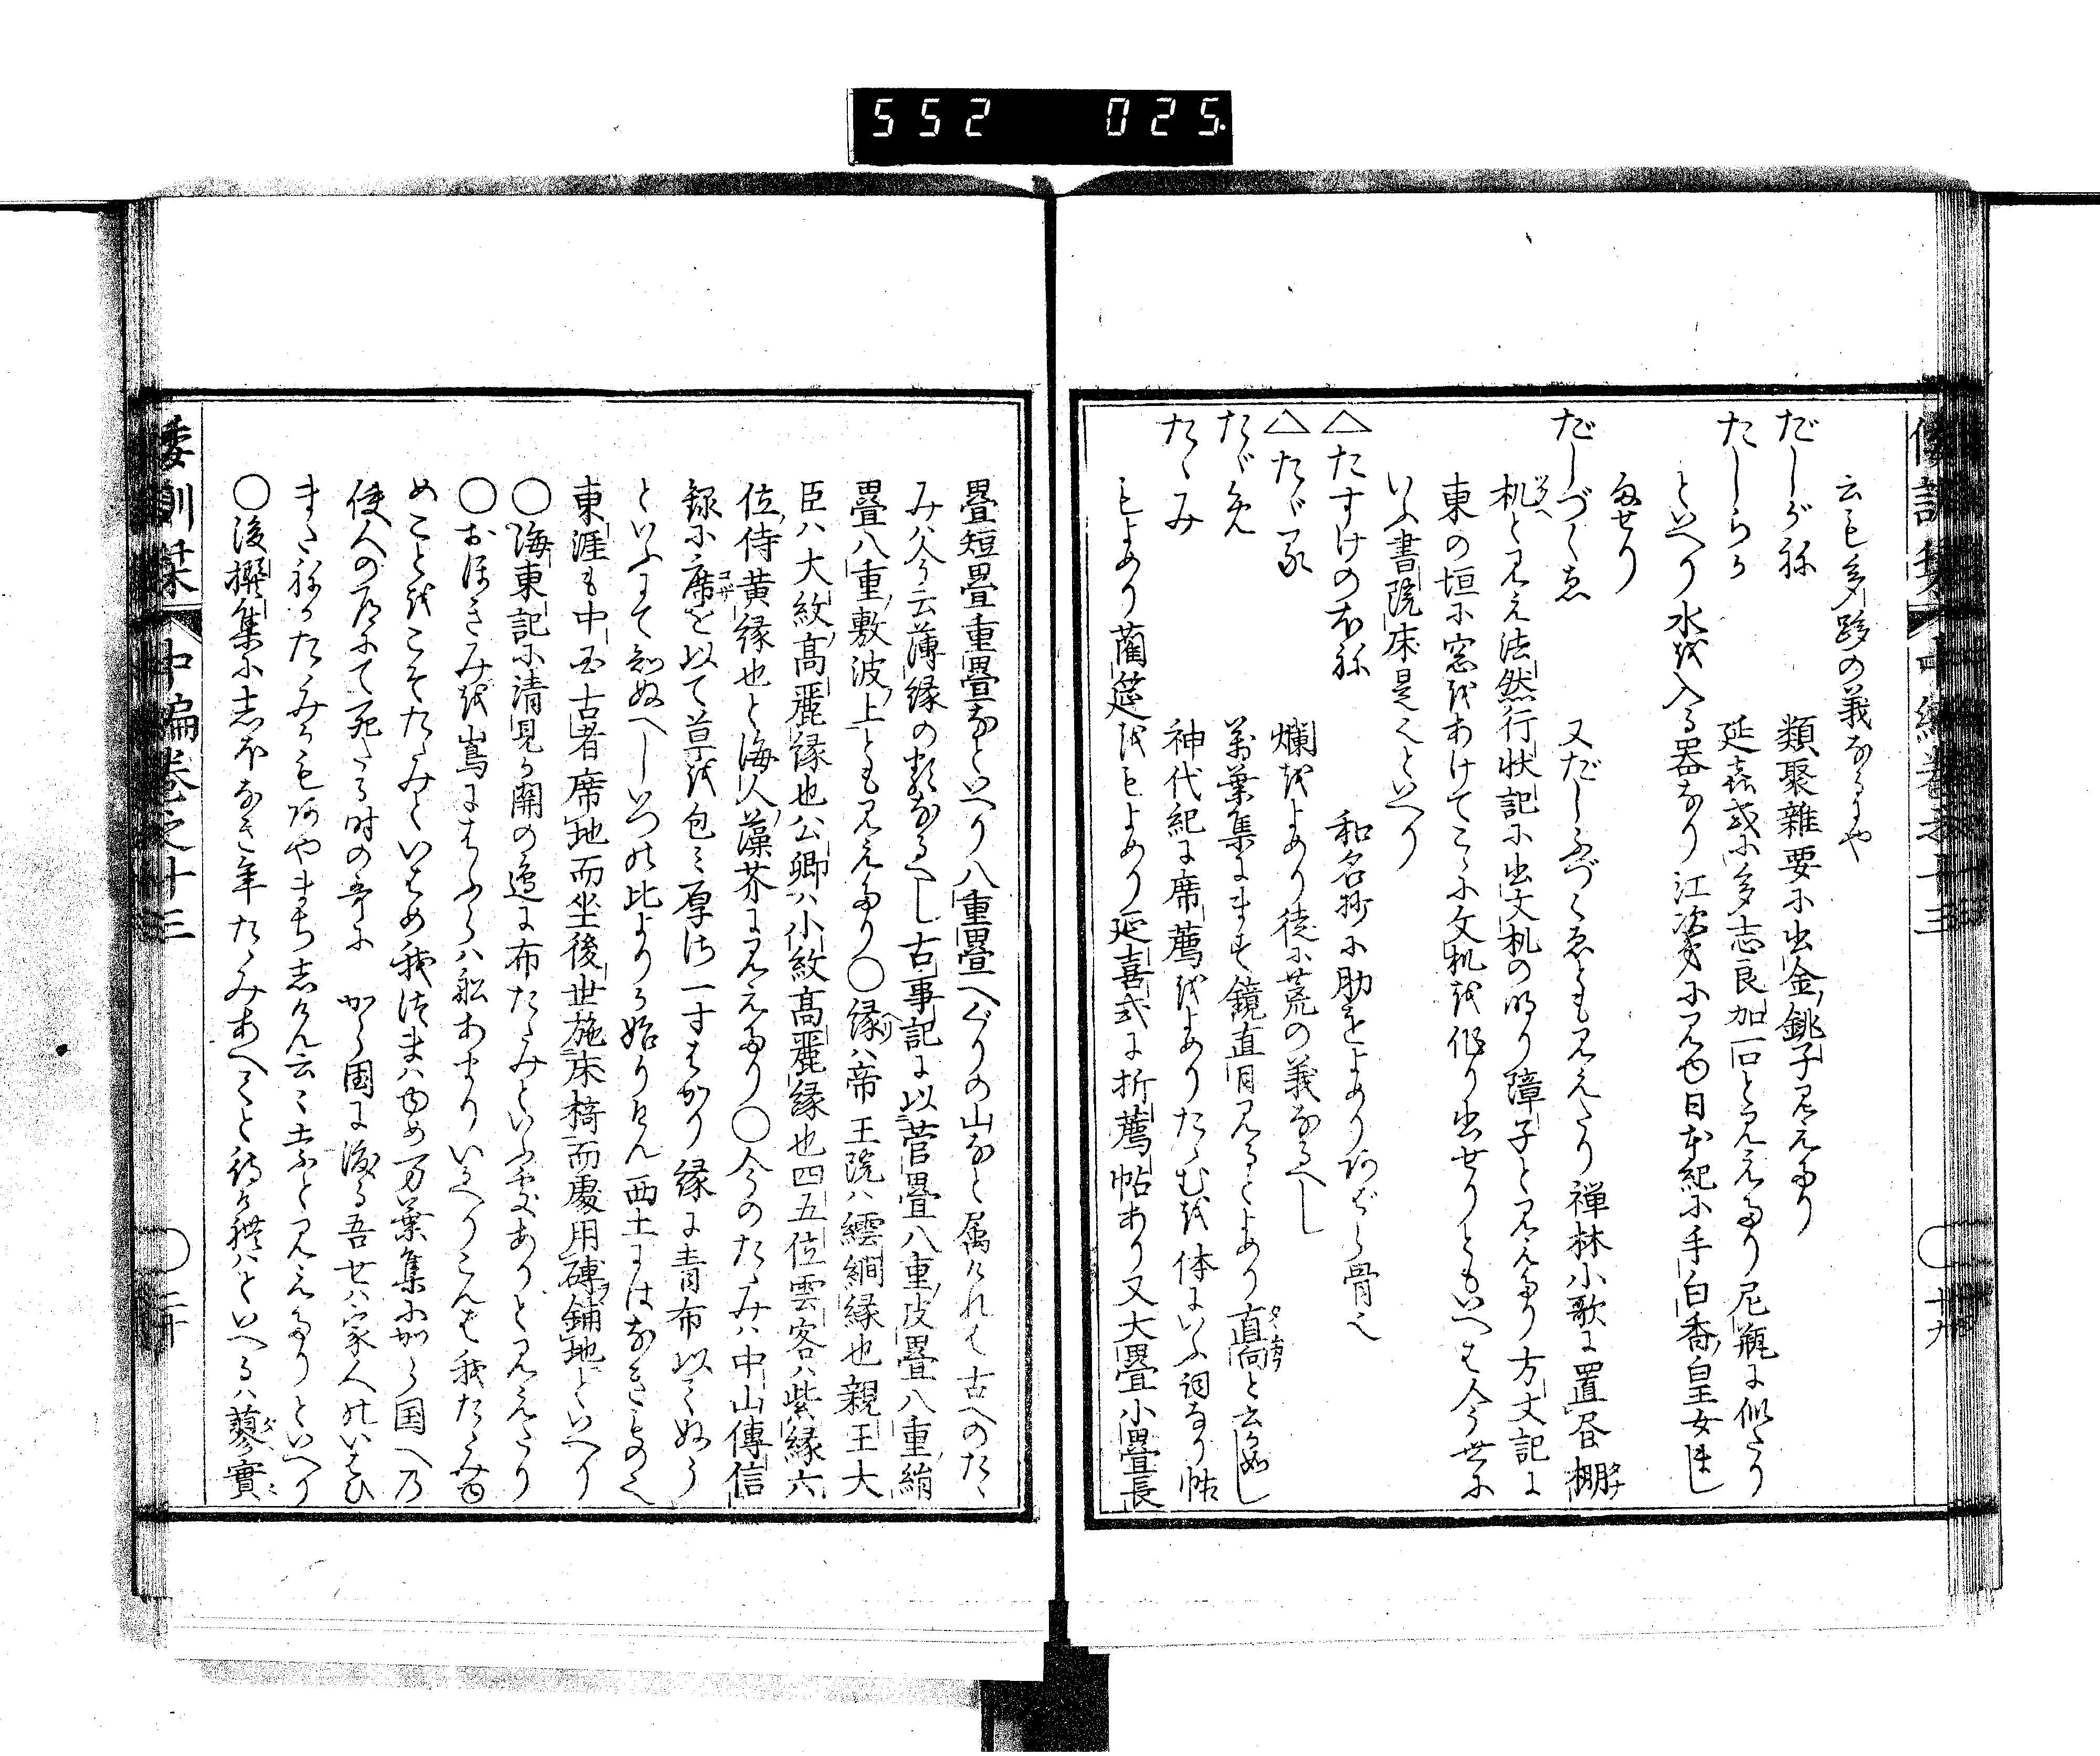 552 025.
云も多跨の義なるにや
だしがね 類聚雑要に出金銚子見えたり
たしらか 延喜式に多志良加一口と見えたり尼瓶に似たり
といへり水を入る器なり江次第に見ゆ日本紀に手白香皇女まし
ませり
だしづくゑ 又だしふづくゑとも見えたり禅林小歌に置昼棚
机と見え法然行状記に出文机の明り障子と見えたり方丈記に
東の垣に窓をあけてこゝに文机を作り出せりともいへは今世に
いふ書院床是也といへり
△たすけのほね 和名抄に肋をよめりあばら骨也
△たゞる 爛をよめり徒に荒の義なるへし
たゞめ 萬葉集にます鏡直目見るとよめり直向と云か如し
たゝみ 神代紀に席薦をよめりたゝむを体にいふ詞なり帖
もよめり藺筵をもよめり延喜式に折薦帖あり又大畳小畳長
畳短畳重畳なといへり八重畳へぐりの山なと属けれは古へのたゝ
みハ今云薄縁の類なるへし古事記に以菅畳八重皮畳八重絹
畳八重敷波上とも見えたり〇縁ハ帝王院ハ繧繝縁也親王大
臣ハ大紋高麗縁也公卿ハ小紋高麗縁也四五位雲客ハ紫縁六
位侍黄縁也と海人藻芥に見えたり〇今のたゝみハ中山傳信
録に席を以て草を包ミ厚さ一寸はかり縁に青布以てぬふ
といふにて知ぬへしいつの比よりか始りけん西土にはなきもの也
東涯も中国古者席地而坐後世施床椅而處用磚鋪地といへり
〇海東記に清見か関の辺に布たゝみといふ家ありと見えたり
〇おほきみを嶌にはふらハ船あまりいかへりこんそ我たゝみゆ
めことをこそたゝみといはめ我つまハゆめ万葉集にから国への
使人の所にて死たる時の哥に から国に渡る吾せハ家人のいはひ
またねかたゝみかもあやまちしけん云々なと見えたりといへり
〇後撰集にしほなき年たゝみあへてと侍けれハといへるハ蓼實
倭訓栞 中編巻之十三 二十